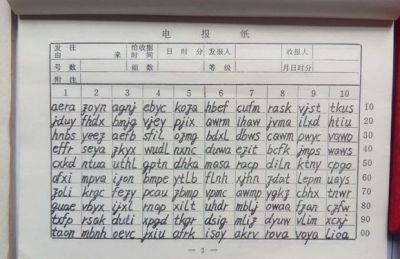 电 报 纸
发 往 来 给收据时间 日 时 分 发报人 收报人
号 数 组数 等 级 月日时分
附 注
1 2 3 4 5 6 7 8 9 10
aera zoyn agnj ebyc koza hbef cufm rask vjst tkus 10
jduy fhdx bmjg vjey pjix awrm ihaw jvma ilxd htiu 20
hnbs yeez aefb sfil ojmg bdxl dbws cawm pwyc vqwo 30
effr seya zkyx wudl nxnc duwa ezit bcfk jmps waws 40
cxkd ntua uthl gptn dhka masa racp diln ktny cpgo 50
afxi mpva ijon bmpe ytlb flnh xjhn jdat lepm uays 60
zoli krgc fezy pcau zbmp vpmc awmp ygkz bhhx tnwr 70
guae vbyx ijxl rnap xilt uhdr mblj owaa fzan czfw 80
txfp rsak duti xpgd tkgr dsig mliz dyuw vlim xcxj 90
taon mbnh oevc jxiu afrk isoy akrv rova voya lioa 00
— 3 —